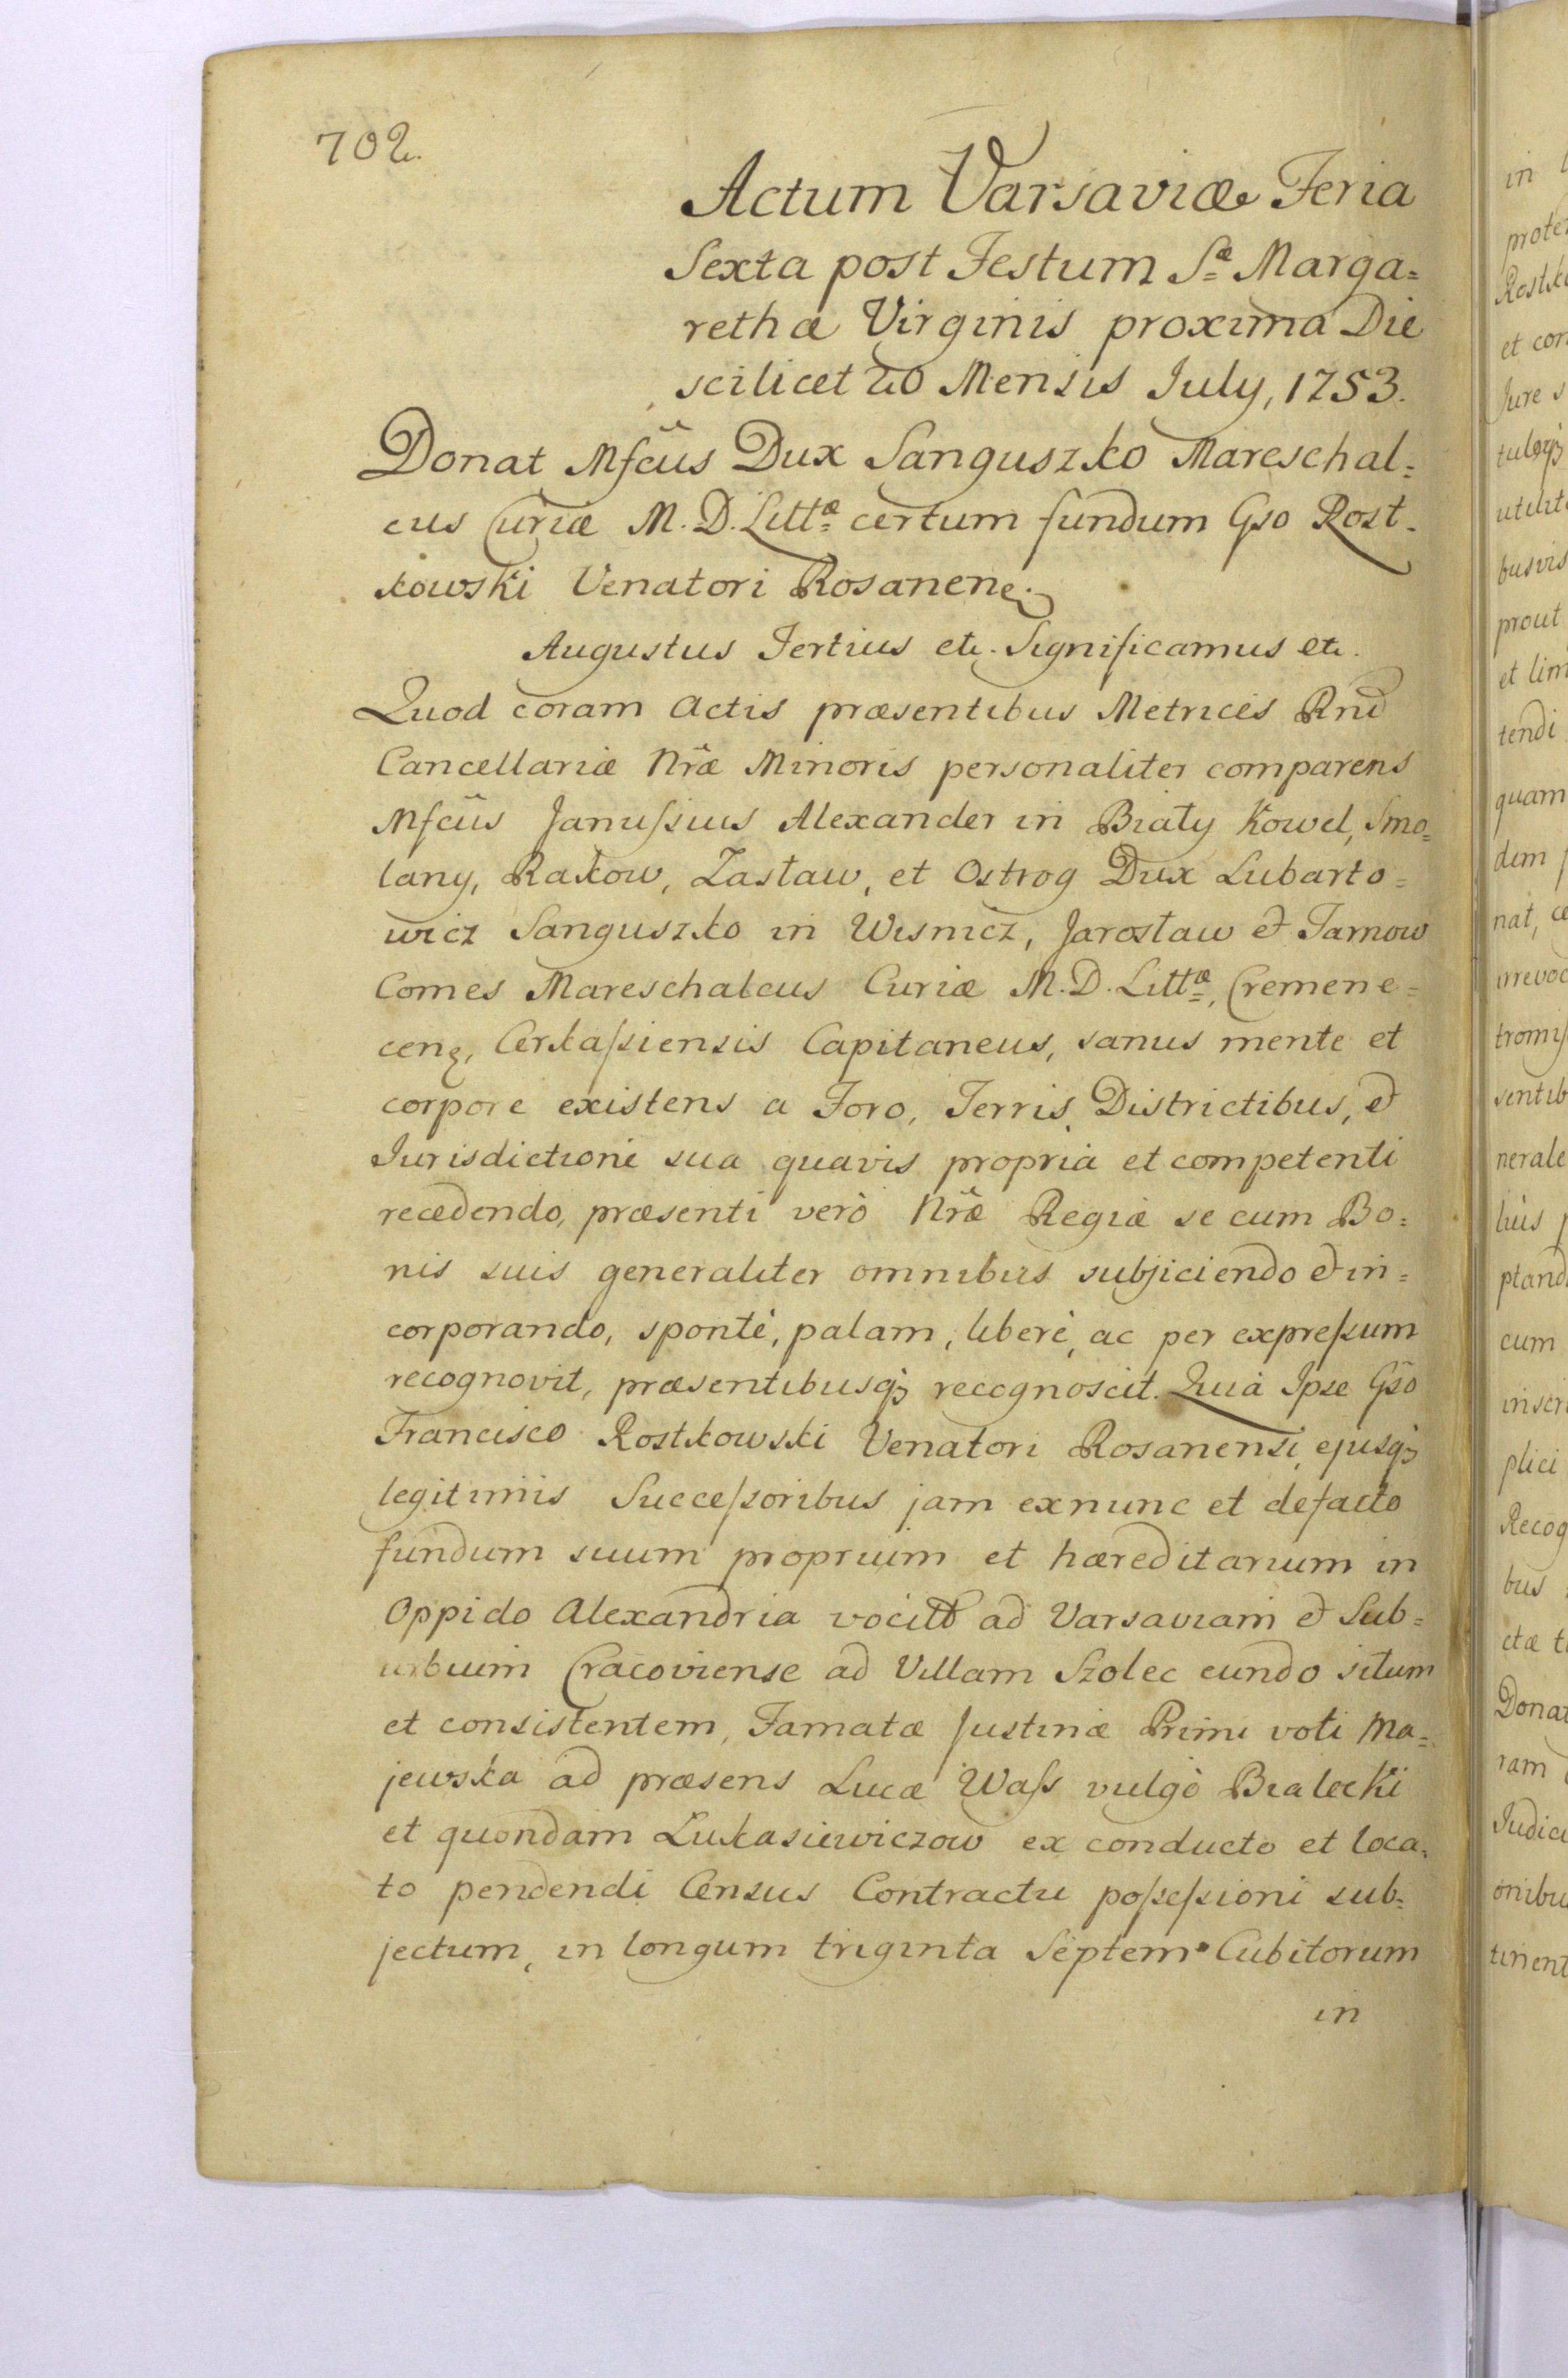 702.
Actum Varsaviæ Feria
Sexta post Festum Sæ Marga=
rethæ Virginis proxima Die
scilicet 20 Mensis July, 1753.
Donat Mfcus Dux Sanguszko Mareschal=
cus Curiæ M. D. Littæ certum fundum Gso Rost-
kowski Venatori Rosanen.
Augustus Tertius etc. Significamus etc.
Quod coram Actis præsentibus Metrices Rni
Cancellariæ Nræ Minoris personaliter comparens
Mfcus Janussius Alexander in Biały Kowel, Smo=
lany, Rakow, Zasław, et Ostrog Dux Lubarto=
wicz Sanguszko in Wisnicz, Jarosław et Tarnow
Comes Mareschalcus Curiæ M. D. Littæ, Cremene=
cen, Cerkassiensis Capitaneus, sanus mente et
corpore existens a Foro, Terris, Districtibus, et
Jurisdictione sua quavis propria et competenti
recedendo, præsenti verò Nræ Regiæ se cum Bo=
nis suis generaliter omnibus subjiciendo et in=
corporando, spontè, palam, liberè, ac per expressum
recognovit, præsentibusq3 recognoscit. Quia Ipse Gso
Francisco Rostkowski Venatori Rosanensi, ejusq3
legitimis Successoribus jam exnunc et defacto
fundum suum proprium et hæreditarium in
Oppido Alexandria vocitto ad Varsaviam et Sub=
urbium Cracoviense ad Villam Szolec eundo situm
et consistentem, Famatæ Justinæ Primi voti Ma=
jewska ad præsens Lucæ Wass vulgò Bialecki
et quondam Łukasiewiczow ex conducto et loca=
to pendendi Census Contractu possessioni sub=
jectum, in longum triginta Septem Cubitorum
in
in
prote
Rostk
et con
Jure s
tuloq3
utilit
busvis
prout
et lim
tendi
quam
dim
nat, ce
irrevoc
tromiss
sentib
nerale
liùs p
ptand
cum
inscri
plici
Recog
bus
ctæ t
Donat
ram
Judici
onibu
tinent